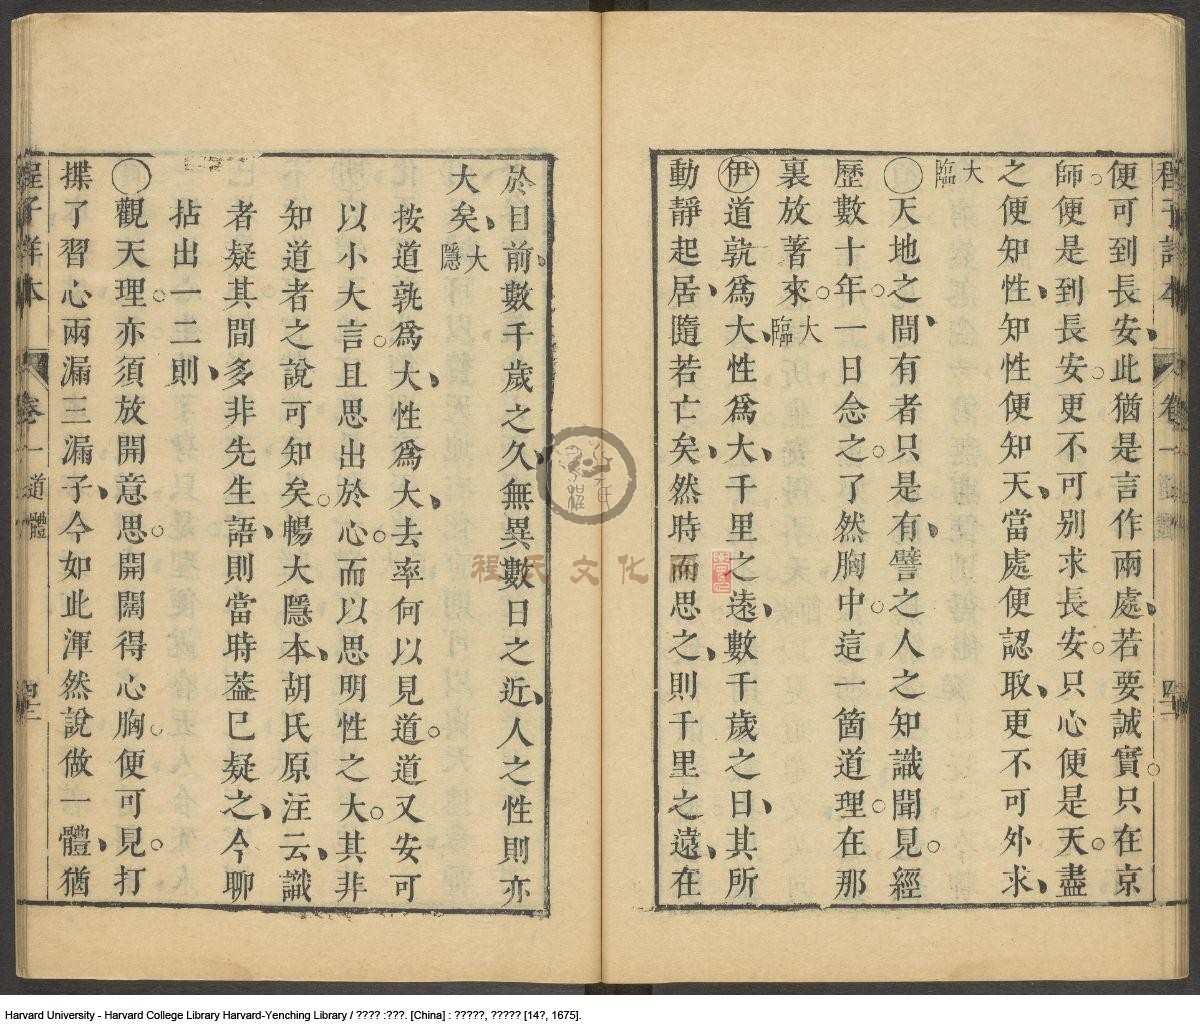 程子詳本 卷一 道體 四二
便可到長安此猶是言作兩處若要誠實只在京
師便是到長安更不可別求長安只心便是天盡
之便知性知性便知天當處便認取更不可外求
大臨
○天地之間有者只是有譬之人之知識聞見經
歷數十年一日念之了然胸中這一箇道理在那
裏放著來大臨
伊道孰爲大性爲大千里之遠數千歲之日其所
動靜起居隨若亡矣然時而思之則千里之遠在
於目前數千歲之久無異數日之近人之性則亦
大矣大隱
按道孰爲大性爲大去率何以見道道又安可
以小大言且思出於心而以思明性之大其非
知道者之說可知矣暢大隱本胡氏原注云識
者疑其間多非先生語則當時葢已疑之今聊
拈出一二則
○觀天理亦須放開意思開闊得心胸便可見打
揲了習心兩漏三漏子今如此渾然說做一體猶
程子詳本 卷一 道體 四三
程氏文化网
Harvard University - Harvard College Library Harvard-Yenching Library / ???? :???. [China] : ?????, ????? [14?, 1675].